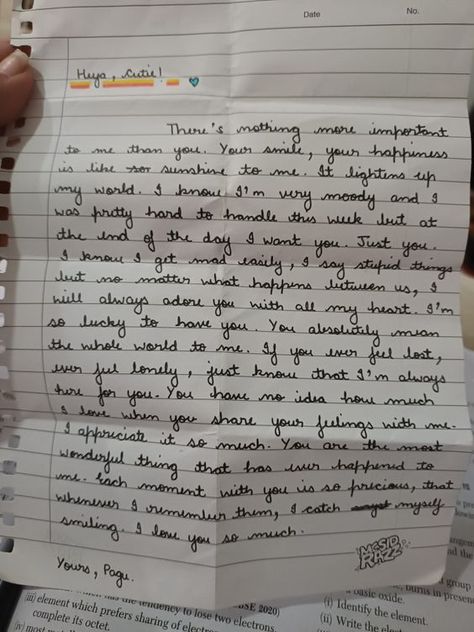 Date
No.
Heya, Cutie!
There's nothing more important
to me than you. Your smile, your happiness
is like sunshine to me. It lightens up
my world. I know I'm very moody and I
was pretty hard to handle this week but at
the end of the day I want you. Just you.
I know I get mad easily, I say stupid things
but no matter what happens between us, I
will always adore you with all my heart. I'm
so lucky to have you. You absolutely mean
the whole world to me. If you ever feel lost,
ever feel lonely, just know that I'm always
here for you. You have no idea how much
I love when you share your feelings with me.
I appreciate it so much. You are the most
wonderful thing that has ever happened to
me. Each moment with you is so precious, that
whenever I remember them, I catch myself
smiling. I love you so much.
Yours, Pagu.
iii) element which prefers sharing of electrons
complete its octet.
the tendency to lose two electrons.
2020)
group
basic oxide.
(i) Identify the element.
(ii) Write the